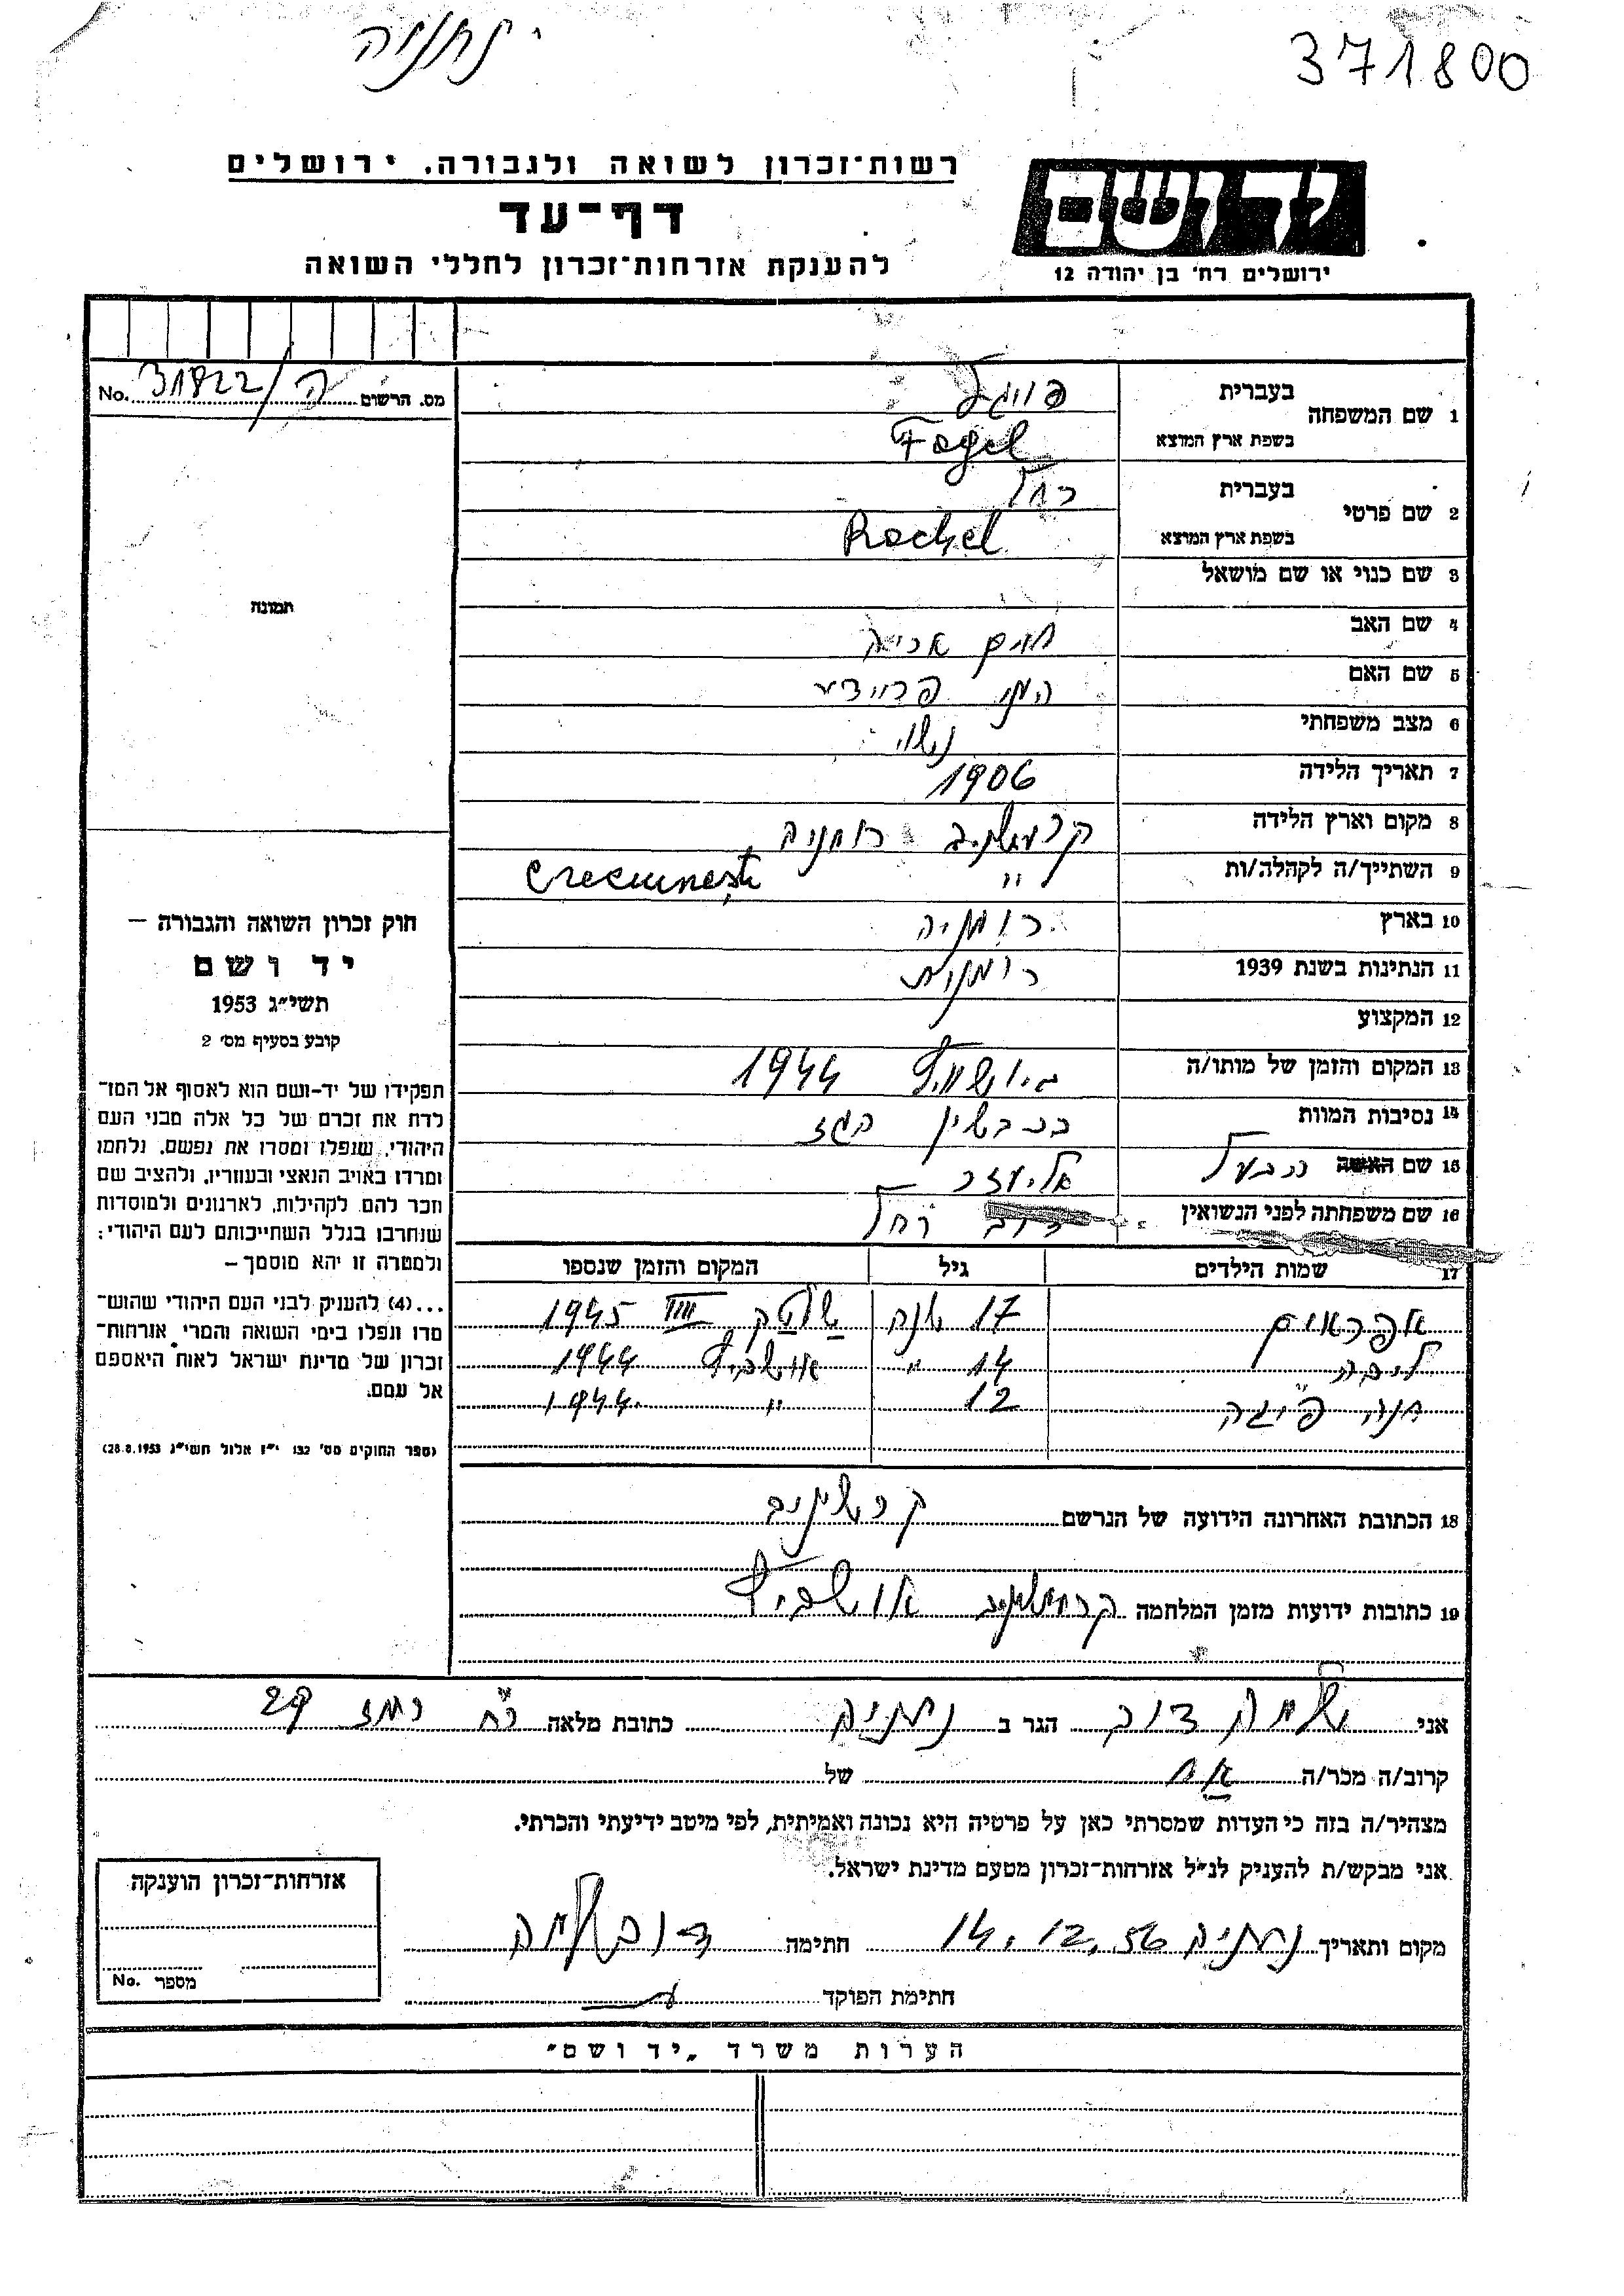 נתניה
371800
רשות־זכרון לשואה ולגבורה, ירושלים
דף-עד
להענקת אזרחות־זכרון לחללי השואה
ידושם
ירושלים רח' בן יהודה 12
מס. הרשום ה/31822 No.
תמונה
1 שם המשפחה
בעברית פוגל
בשפת ארץ המוצא Fogel
2 שם פרטי
בעברית רחל
בשפת ארץ המוצא Rachel
3 שם כנוי או שם מושאל
4 שם האב חיים אריה
5 שם האם
6 מצב משפחתי נשוי
7 תאריך הלידה 1906
8 מקום וארץ הלידה רומניה
9 השתייך/ה לקהלה/ות " Crecıuneşti
10 בארץ רומניה
11 הנתינות בשנת 1939 רומנית
12 המקצוע
13 המקום והזמן של מותו/ה 1944
14 נסיבות המוות בכבשין הגז
15 שם האשה הבעל אליעזר
16 שם משפחתה לפני הנשואין דוב רחל
17 שמות הילדים גיל המקום והזמן שנספו
אפראים 17 שנה 1945
ליבה 14 " אושביץ 1944
חנה פייגה 12 " 1944
18 הכתובת האחרונה הידועה של הנרשם
19 כתובות ידועות מזמן המלחמה אושביץ
חוק זכרון השואה והגבורה —
יד ושם
תשי״ג 1953
קובע בסעיף מס׳ 2
תפקידו של יד-ושם הוא לאסוף אל המו־
לדת את זכרם של כל אלה מבני העם
היהודי, שנפלו ומסרו את נפשם, נלחמו
ומרדו באויב הנאצי ובעוזריו, ולהציב שם
וזכר להם לקהילות, לארגונים ולמוסדות
שנחרבו בגלל השתייכותם לעם היהודי;
ולמטרה זו יהא מוסמך —
...(4) להעניק לבני העם היהודי שהוש־
מדו ונפלו בימי השואה והמרי אזרחות־
זכרון של מדינת ישראל לאות היאספם
אל עמם.
(ספר החוקים מס׳ 132 י״ז אלול תשי״ג 28.8.1953)
אני שלמה דוב הגר ב נתניה כתובת מלאה רח רמז 29
קרוב/ה מכר/ה אח של
מצהיר/ה בזה כי העדות שמסרתי כאן על פרטיה היא נכונה ואמיתית, לפי מיטב ידיעתי והכרתי.
אני מבקש/ת להעניק לנ״ל אזרחות־זכרון מטעם מדינת ישראל.
מקום ותאריך נתניה 14.12.56 חתימה דוב שלמה
חתימת הפוקד
אזרחות־זכרון הוענקה
מספר No.
הערות משרד „יד ושם״